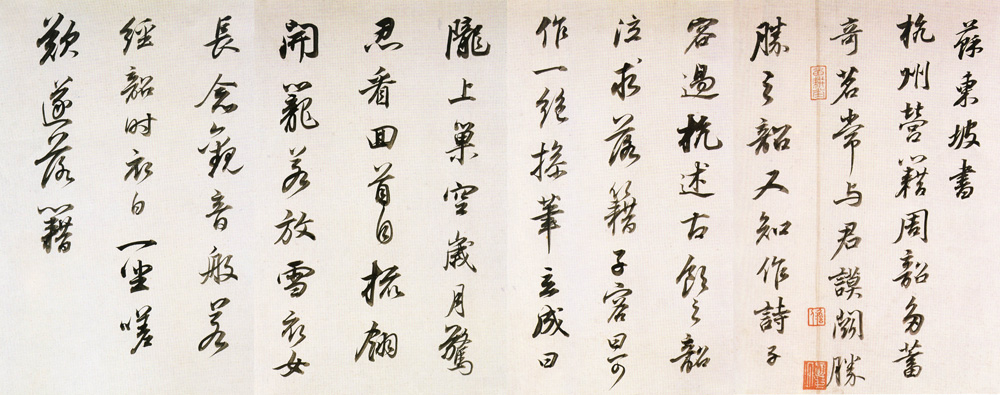 蘇東坡書
杭州營籍周韶多蓄
奇茗常与君謨鬭勝
勝之韶又知作詩子
容過杭述古飲之韶
泣求落籍子容曰可
作一絕援筆立成曰
隴上巢空歲月驚
忍看回首自梳翎
開籠若放雪衣女
長念觀音般若
經韶时衣白一坐嗟
歎遂落籍